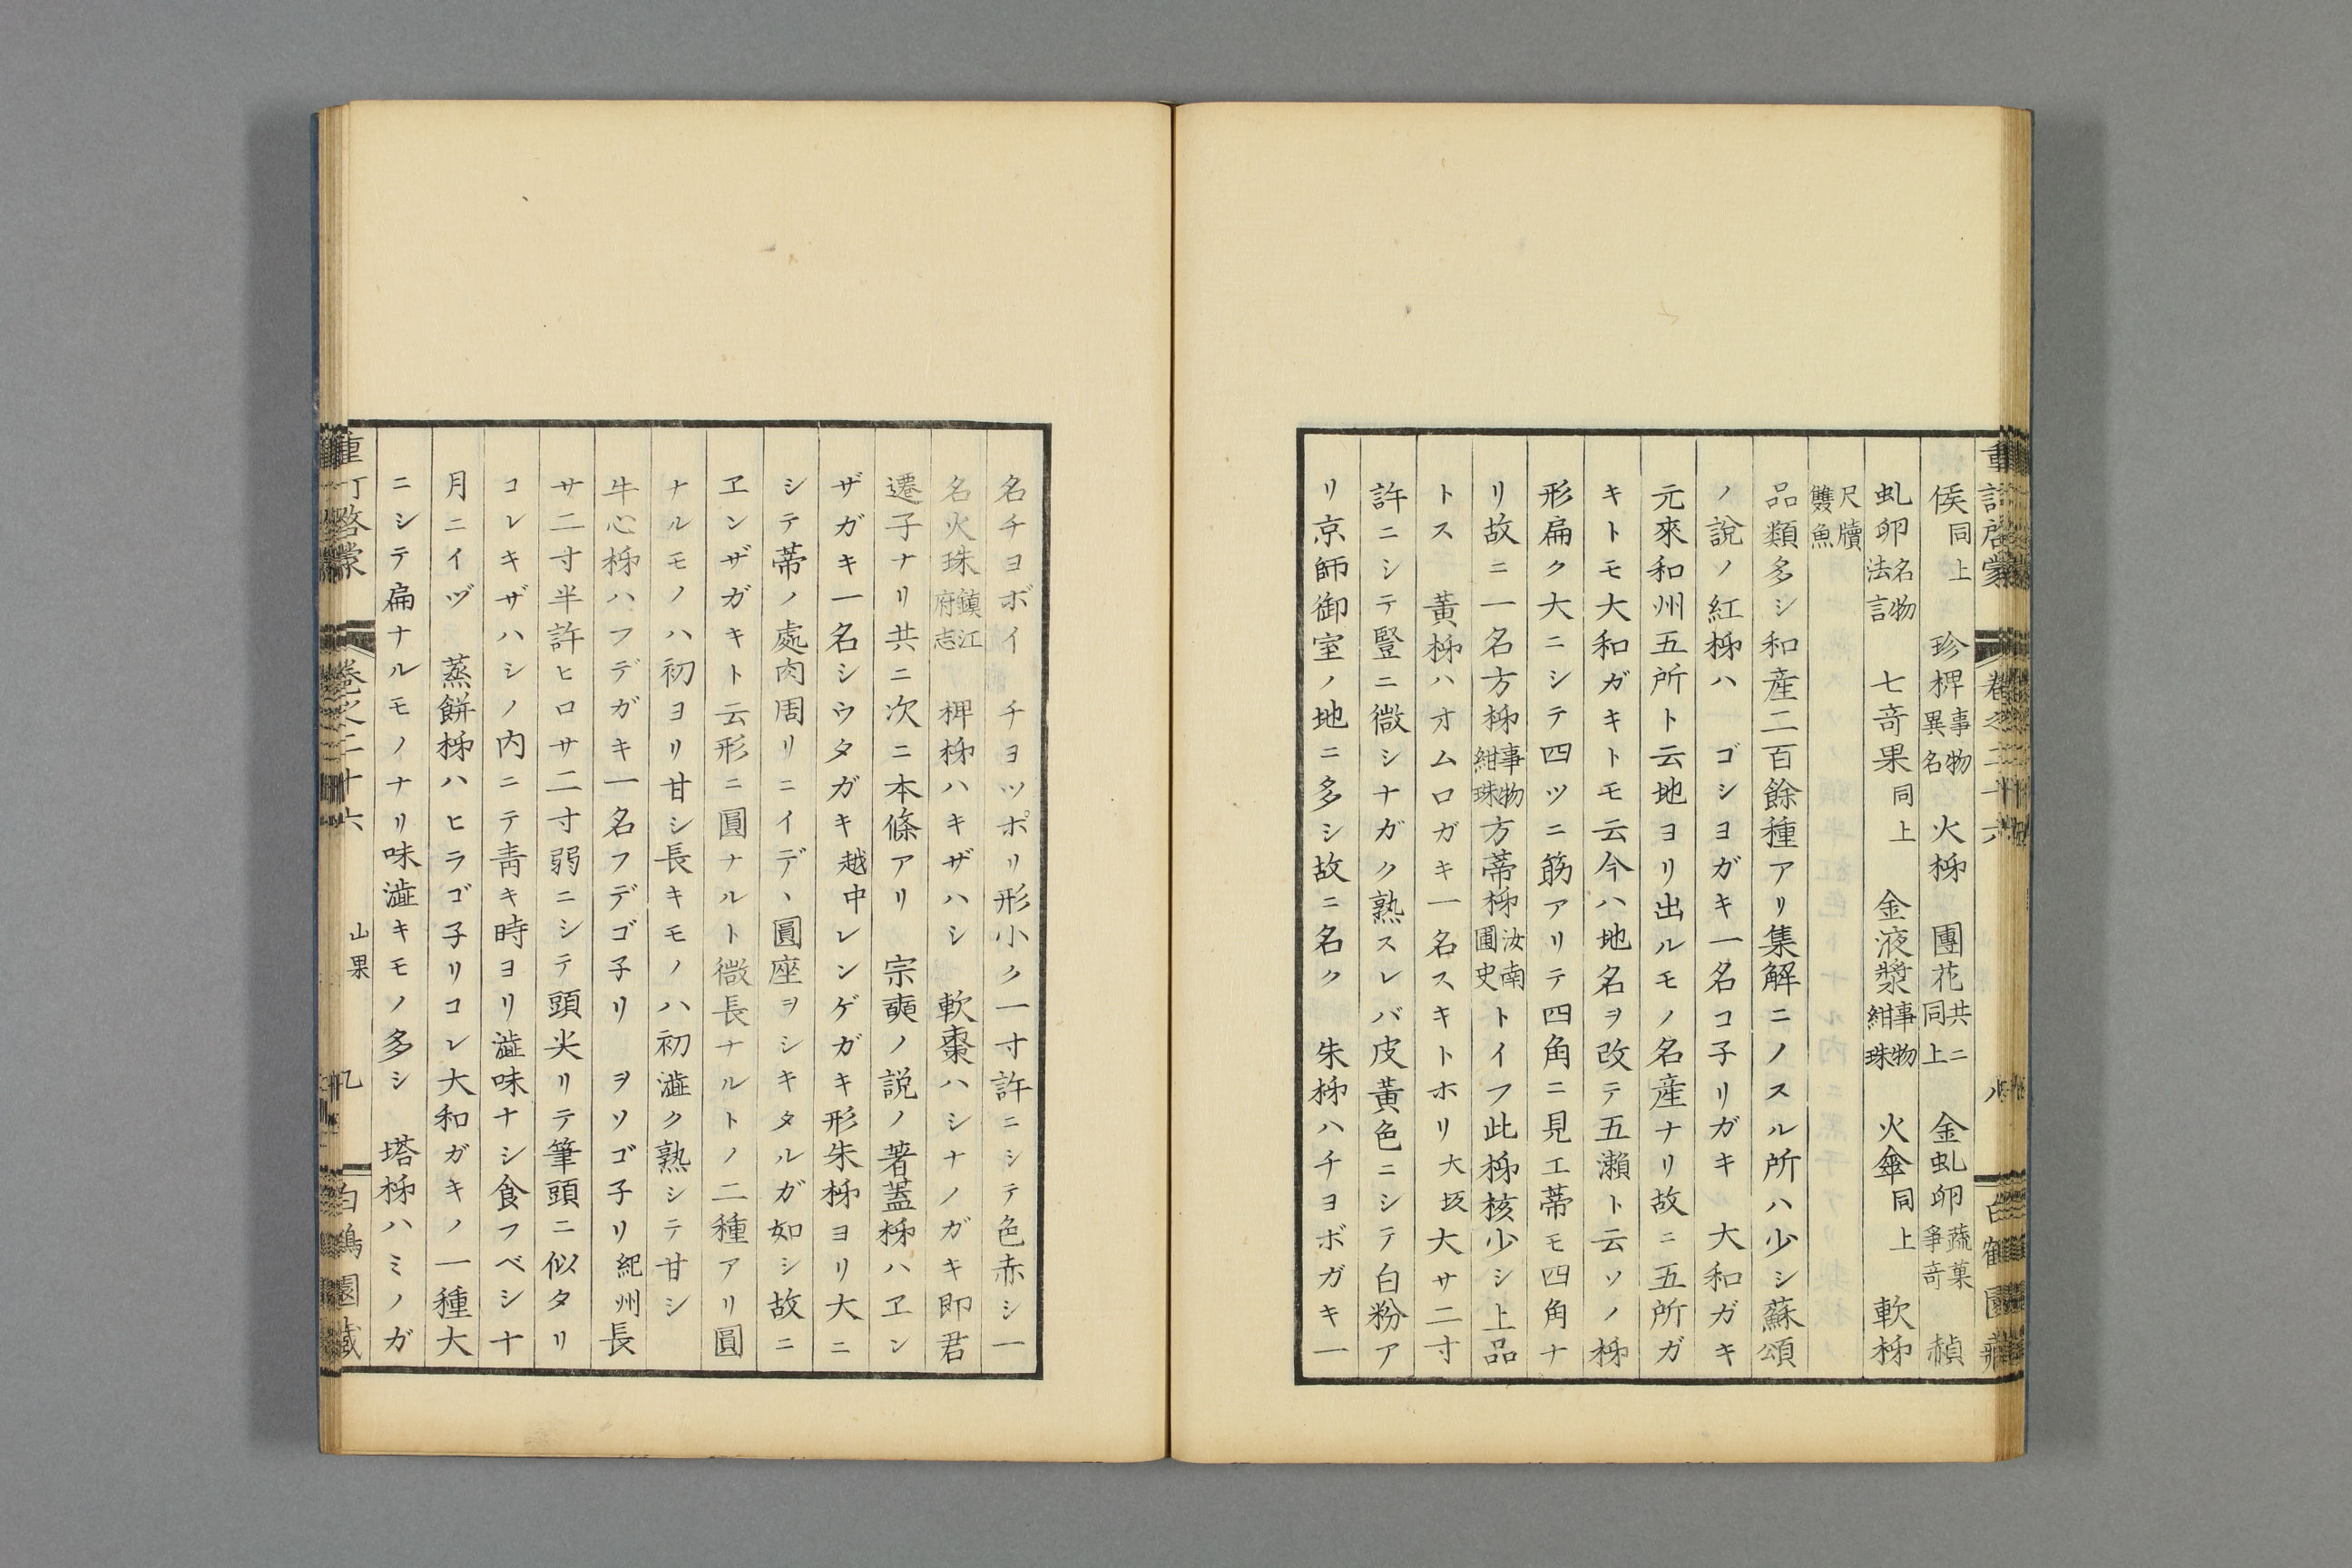 侯同上　珍椑事物異名　火柹　團花共ニ同上　金虬卵蔬菓爭奇　赬
虬卵名物法言　七奇果同上　金液漿事物紺珠　火傘同上　軟柹
尺牘雙魚
品類多シ和産二百餘種アリ集解ニノスル所ハ少シ蘇頌
ノ說ノ紅柹ハ　ゴシヨガキ一名コ子リガキ　大和ガキ
元來和州五所ト云地ヨリ出ルモノ名産ナリ故ニ五所ガ
キトモ大和ガキトモ云今ハ地名ヲ改テ五瀨ト云ソノ柹
形扁ク大ニシテ四ツニ筋アリテ四角ニ見エ蒂モ四角ナ
リ故ニ一名方柹事物紺珠方蒂柹汝南圃史トイフ此柹核少シ上品
トス　黃柹ハオムロガキ一名スキトホリ大坂大サ二寸
許ニシテ豎ニ微シナガク熟スレバ皮黃色ニシテ白粉ア
リ京師御室ノ地ニ多シ故ニ名ク　朱柹ハチヨボガキ一
名チヨボイ　チヨツポリ形小ク一寸許ニシテ色赤シ一
名火珠鎮江府志　椑柹ハキザハシ　軟棗ハシナノガキ即君
遷子ナリ共ニ次ニ本條アリ　宗奭ノ説ノ著蓋柹ハヱン
ザガキ一名シウタガキ越中レンゲガキ形朱柹ヨリ大ニ
シテ蒂ノ處肉周リニイデヽ圓座ヲシキタルガ如シ故ニ
ヱンザガキト云形ニ圓ナルト微長ナルトノ二種アリ圓
ナルモノハ初ヨリ甘シ長キモノハ初澁ク熟シテ甘シ
牛心柹ハフデガキ一名フデゴ子リ　ヲソゴ子リ紀州長
サ二寸半許ヒロサ二寸弱ニシテ頭尖リテ筆頭ニ似タリ
コレキザハシノ内ニテ青キ時ヨリ澁味ナシ食フベシ十
月ニイヅ　蒸餅柹ハヒラゴ子リコレ大和ガキノ一種大
ニシテ扁ナルモノナリ味澁キモノ多シ　塔柹ハミノガ
山果